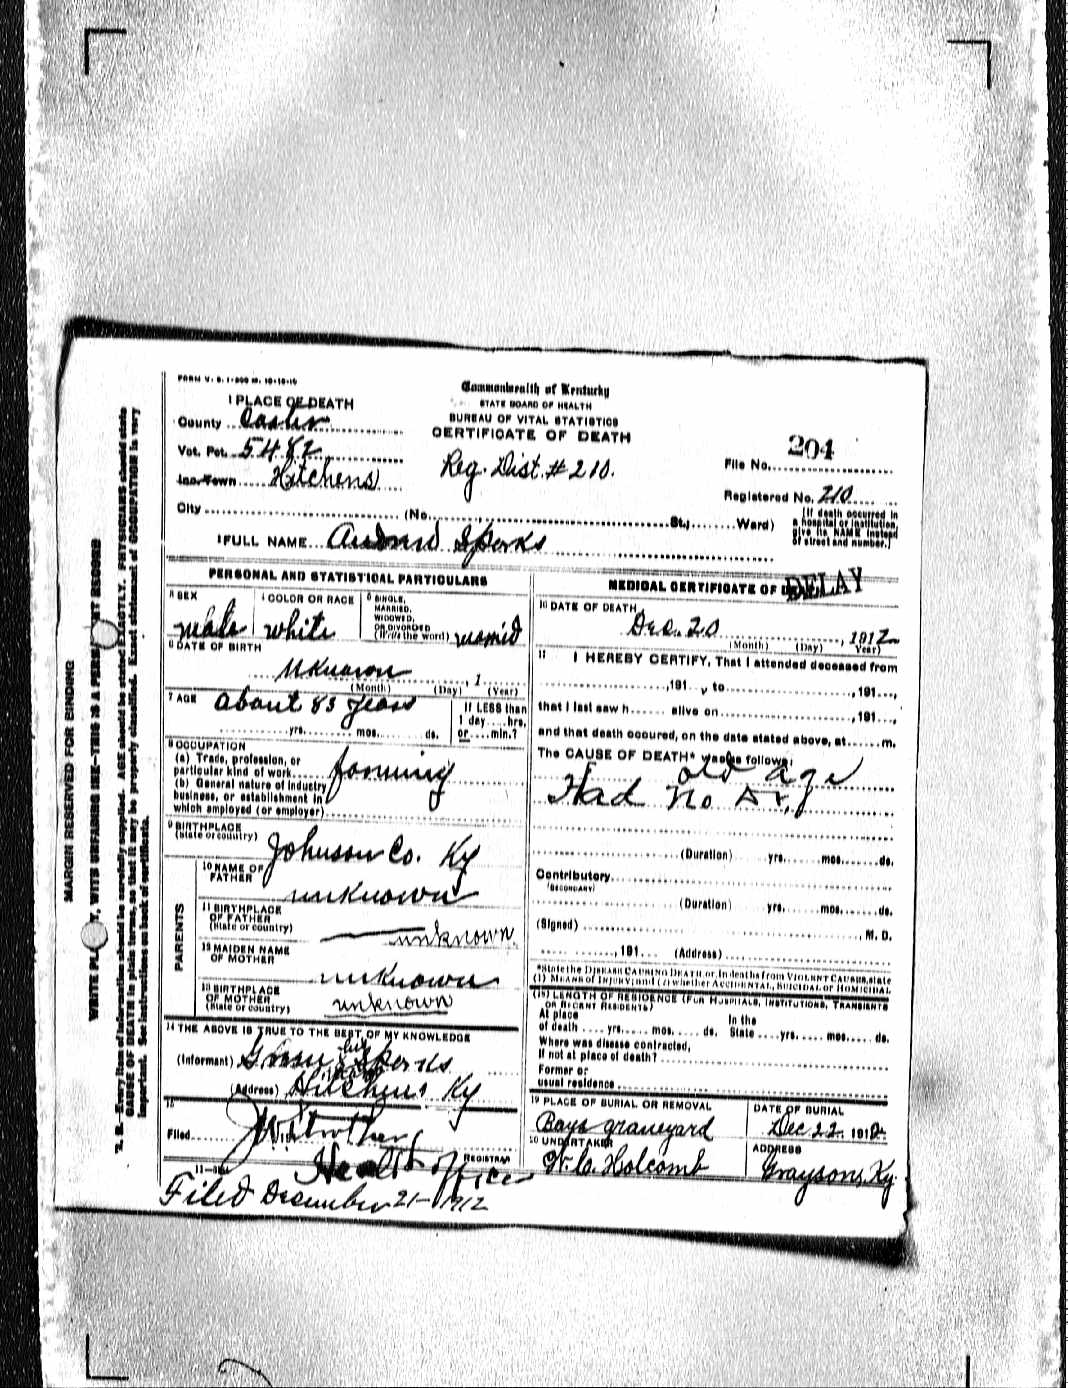 FORM V. S. 1-300 M. 10-18-10
Commonwealth of Kentucky
STATE BOARD OF HEALTH
BUREAU OF VITAL STATISTICS
CERTIFICATE OF DEATH
1 PLACE OF DEATH
County Carter
Vot. Pct. 5482
Inc. Town Hitchens
City (No. St.; Ward)
Reg. Dist. # 210.
204
File No.
Registered No. 210
[If death occurred in
a hospital or institution,
give its NAME instead
of street and number.]
1 FULL NAME Sparks
PERSONAL AND STATISTICAL PARTICULARS
SEX
Male
4 COLOR OR RACE
white
5 SINGLE,
MARRIED,
WIDOWED,
OR DIVORCED
(Write the word)
6 DATE OF BIRTH
Unknown , 1
(Month) (Day) (Year)
7 AGE about 83 years
yrs. mos. ds.
If LESS than
1 day hrs.
or min.?
8 OCCUPATION
(a) Trade, profession, or
particular kind of work farming
(b) General nature of industry
business, or establishment in
which employed (or employer)
9 BIRTHPLACE
(State or country) Johnson Co. Ky
PARENTS
10 NAME OF
FATHER unknown
11 BIRTHPLACE
OF FATHER
(State or country) unknown
12 MAIDEN NAME
OF MOTHER unknown
13 BIRTHPLACE
OF MOTHER
(State or country) unknown
14 THE ABOVE IS TRUE TO THE BEST OF MY KNOWLEDGE
(Informant) Sparks
(Address) Hitchens Ky
15
Filed
REGISTRAR
Health officer
11-
Filed December 21-1912
MEDICAL CERTIFICATE OF
DELAY
16 DATE OF DEATH
Dec. 20 , 1912
(Month) (Day) (Year)
17 I HEREBY CERTIFY, That I attended deceased from
,191 , to ,191 ,
that I last saw h alive on ,191 ,
and that death occured, on the date stated above, at m.
The CAUSE OF DEATH* was as follows:
old age
Had no Dr.
(Duration) yrs. mos. ds.
Contributory
(SECONDARY)
(Duration) yrs. mos. ds.
(Signed) , M. D.
,191 (Address)
*State the DISEASE CAUSING DEATH or, in deaths from VIOLENT CAUSES, state
(1) MEANS OF INJURY; and (2) whether ACCIDENTAL, SUICIDAL OR HOMICIDAL
(18) LENGTH OF RESIDENCE (FOR HOSPITALS, INSTITUTIONS, TRANSIENTS
OR RECENT RESIDENTS)
At place In the
of death yrs. mos. ds. State yrs. mos. ds.
Where was disease contracted,
If not at place of death?
Former or
usual residence
19 PLACE OF BURIAL OR REMOVAL
Bays graveyard
DATE OF BURIAL
Dec 22 1912
20 UNDERTAKER
W. C. Holcomb
ADDRESS
Grayson, Ky.
MARGIN RESERVED FOR BINDING
WRITE PLAINLY, WITH UNFADING INK—THIS IS A PERMANENT RECORD
N. B.—Every item of information should be carefully supplied. AGE should be stated EXACTLY. PHYSICIANS should state
CAUSE OF DEATH in plain terms, so that it may be properly classified. Exact statement of OCCUPATION is very
important. See instructions on back of certificate.